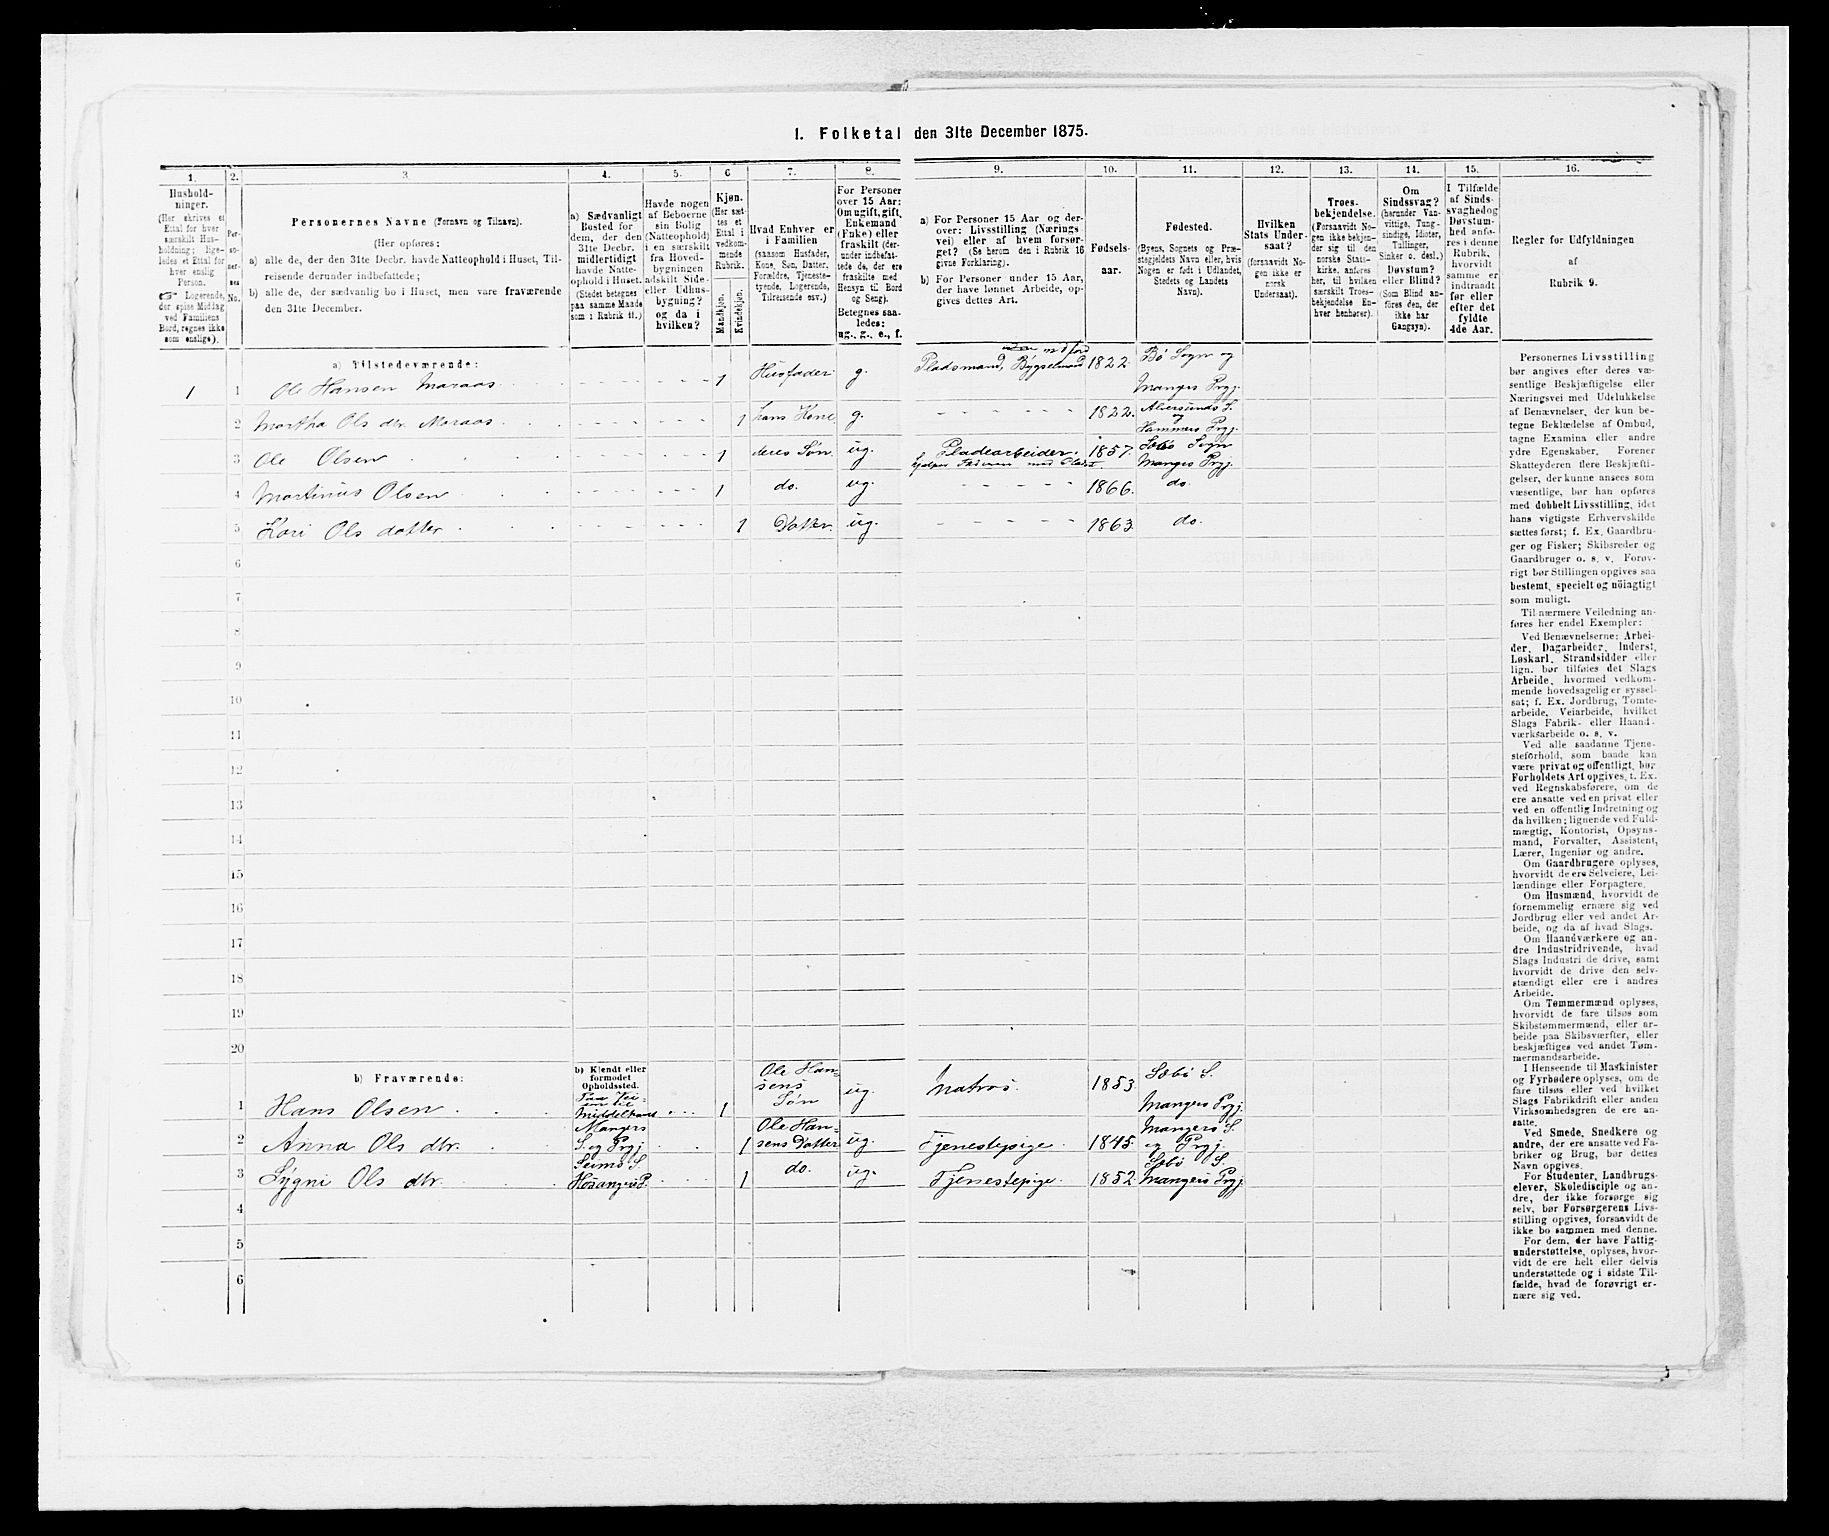 1. Folketal den 31te December 1875.
1.
Hushold-
ninger.
(Her skrives et
Ettal for hver
særskilt Hus-
holdning; lige-
ledes et Ettal for
hver enslig
Person.
Logerende,
der spise Middag
ved Familiens
Bord, regnes ikke
som enslige).
2.
Per-
so-
ner-
nes
No.
3.
Personernes Navne (Fornavn og Tilnavn).
(Her opføres:
a) alle de, der den 31te Decbr. havde Natteophold i Huset, Til-
reisende derunder indbefattede;
b) alle de, der sædvanlig bo i Huset, men vare fraværende
den 31te December.
4.
a) Sædvanligt
Bosted for
dem, der den
31te Decbr.
midlertidigt
havde Natte-
ophold i Huset.
(Stedet betegnes
paa samme Maade
som i Rubrik 11.)
5.
Havde nogen
af Beboerne
sin Bolig
(Natteophold)
i en særskilt
fra Hoved-
bygningen
adskilt Side-
eller Udhus-
bygning?
og da i
hvilken?
6
Kjøn.
(Her sæt-
tes et
Ettal i
vedkom-
mende
Rubrik.
Mandkjøn.
Kvindekjøn.
7.
Hvad Enhver er
i Familien
(saasom Husfader,
Kone, Søn, Datter,
Forældre, Tjeneste-
tyende, Logerende,
Tilreisende osv.)
8.
For Personer
over 15 Aar:
Om ugift, gift,
Enkemand
(Enke) eller
fraskilt (der-
under indbefat-
tede de, der ere
fraskilte med
Hensyn til Bord
og Seng).
Betegnes saa-
ledes:
ug., g., e., f.
9.
a) For Personer 15 Aar og der-
over: Livsstilling (Nærings-
vei) eller af hvem forsør-
get? (Se herom den i Rubrik 16
givne Forklaring).
b) For Personer under 15 Aar,
der have lønnet Arbeide, op-
gives dettes Art.
10.
Fødsels-
aar.
11.
Fødested.
(Byens, Sognets og Præ-
stegjeldets Navn eller, hvis
Nogen er født i Udlandet,
Stedets og Landets
Navn).
12.
Hvilken
Stats Under-
saat?
(forsaavidt No-
gen ikke er
norsk
Undersaat).
13.
Troes-
bekjendelse.
(Forsaavidt No-
gen ikke bekjen-
der sig til den
norske Stats-
kirke, anføres
her, til hvilken
særskilt Troes-
bekjendelse En-
hver henhører).
14.
Om
Sindssvag?
(herunder Van-
vittige, Tung-
sindige, Idioter,
Tullinger,
Sinker o. desl.)
Døvstum?
eller Blind?
(Som Blind an-
føres den, der
ikke har
Gangsyn).
15.
I Tilfælde
af Sinds-
svaghed og
Døvstum-
hed anfø-
res i denne
Rubrik,
hvorvidt
samme er
indtraadt
før eller
efter det
fyldte
4de Aar.
16.
Regler for Udfyldningen
af
Rubrik 9.
a) Tilstedeværende:
1 1 Ole Hansen Maraas 1 Husfader g. Pladsmand, Bygselmand med jord 1822. Bø Sogn og
Mangers Prgj.
2 Martha Ols dtr. Maraas 1 hans Kone g. 1822. Alversunds S.
og
Hammers Prgj.
3 Ole Olsen 1 deres Søn ug. 1857. Sæbø Sogn
Mangers Prgj.
4 Martinus Olsen 1 do. ug. 1866. do.
5 Kari Ols datter 1 Datter ug. 1863. do.
6
7
8
9
10
11
12
13
14
15
16
17
18
19
20
b) Fraværende:
b) Kjendt eller
formodet
Opholdssted.
1 Hans Olsen Middelhavet 1 Ole Han-
sens
Søn ug. Matros. 1853. Sæbø S.
Mangers Prgj.
2 Anna Ols dtr. Mangers
S. og Prgj. 1 Ole Han-
sens Datter ug. Tjenestepige. 1845. Mangers S.
og Prgj.
3 Sygni Ols dtr. Seims S.
Hosangers P. 1 do. ug. Tjenestepige. 1852. Sæbø S.
Mangers Prgj.
4
5
6
Personernes Livsstilling
bør angives efter deres væ-
sentlige Beskjæftigelse eller
Næringsvei med Udelukkelse
af Benævnelser, der kun be-
tegne Beklædelse af Ombud,
tagne Examina eller andre
ydre Egenskaber. Forener
Skatteyderen flere Beskjæfti-
gelser, der kunne ansees som
væsentlige, bør han opføres
med dobbelt Livsstilling, idet
hans vigtigste Erhvervskilde
sættes først; f. Ex. Gaardbru-
ger og Fisker; Skibsreder og
Gaardbruger o. s. v. Forøv-
rigt bør Stillingen opgives saa
bestemt, specielt og nöiagtigt
som muligt.
Til nærmere Veiledning an-
føres her endel Exempler:
Ved Benævnelserne: Arbei-
der, Dagarbeider, Inderst,
Løskarl, Strandsidder eller
lign. bør tilføies det Slags
Arbeide, hvormed vedkom-
mende hovedsagelig er syssel-
sat; f. Ex. Jordbrug, Tomte-
arbeide, Veiarbeide, hvilket
Slags Fabrik- eller Haand-
værksarbeide o. s. v.
Ved alle saadanne Tjene-
steforhold, som baade kan
være privat og offentligt, bør
Forholdets Art opgives, t. Ex.
ved Regnskabsførere, om de
ere ansatte ved en privat eller
ved en offentlig Indretning og
da hvilken; lignende ved Fuld-
mægtig, Kontorist, Opsyns-
mand, Forvalter, Assistent,
Lærer, Ingeniør og andre.
Om Gaardbrugere oplyses,
hvorvidt de ere Selveiere, Lei-
lændinge eller Forpagtere.
Om Husmænd, hvorvidt de
fornemmelig ernære sig ved
Jordbrug eller ved andet Ar-
beide, og da af hvad Slags.
Om Haandværkere og an-
dre Industridrivende, hvad
Slags Industri de drive, samt
hvorvidt de drive den selv-
stændigt eller ere i andres
Arbeide.
Om Tømmermænd oplyses,
hvorvidt de fare tilsøs som
Skibstømmermænd, eller ar-
beide paa Skibsværfter, eller
beskjæftiges ved andet Tøm-
mermandsarbeide.
I Henseende til Maskinister
og Fyrbødere oplyses, om de
fare tilsøs eller ved hvilket
Slags Fabrikdrift eller anden
Virksomhedsgren de ere an-
satte.
Ved Smede, Snedkere og
andre, der ere ansatte ved Fa-
briker og Brug, bør dettes
Navn opgives.
For Studenter, Landbrugs-
elever, Skoledisciple og an-
dre, der ikke forsørge sig
selv, bør Forsørgerens Livs-
stilling opgives, forsaavidt de
ikke bo sammen med denne.
For dem, der have Fattig-
understøttelse, oplyses, hvor-
vidt de ere helt eller delvis
understøttede og i sidste Til-
fælde, hvad de forøvrigt er-
nære sig ved.